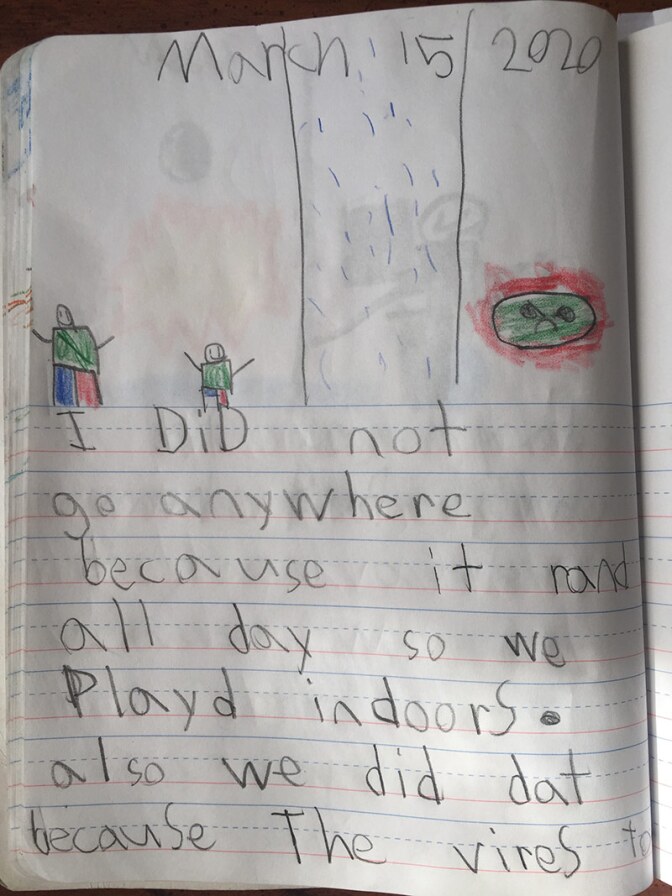 March 15 2020
I DiD not
go anywhere
because it rand
all day so we
Playd indoors.
also we did dat
because The vires to